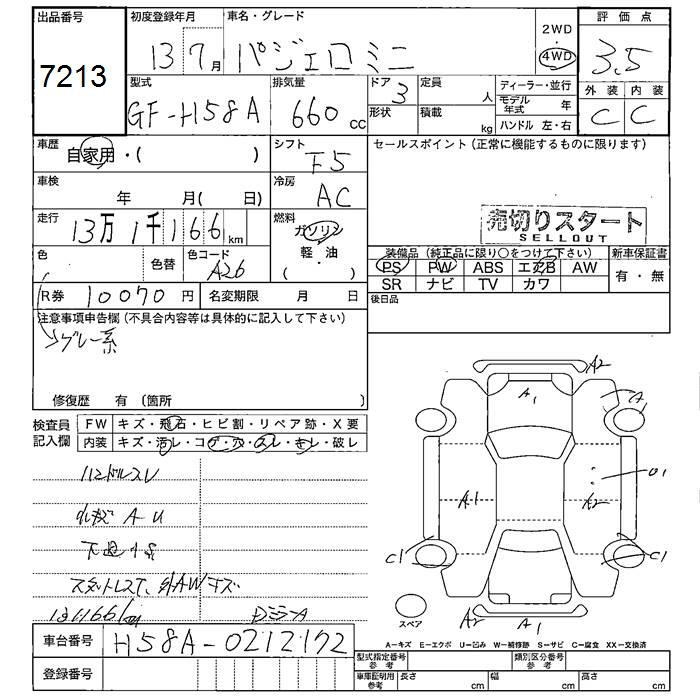 出品番号 初度登録年月 車名・グレード 2WD 4WD 評価点
7213 13 7月 パジェロミニ 3.5
型式 排気量 ドア 定員 人 ディーラー・並行 外装 内装
GF-H58A 660 cc 3 形状 積載 kg モデル年式 年 C C
ハンドル 左・右
車歴 自家用・( ) シフト F5 セールスポイント(正常に機能するものに限ります)
車検 年 月(日) 冷房 AC
走行 13万1千166km 燃料 ガソリン 軽・油 ( )
売切りスタート
SELLOUT
色 色替 色コード A26
装備品(純正品に限り○をつけて下さい) 新車保証書
PS PW ABS エアB AW 有・無
SR ナビ TV カワ
R券 10070円 名変期限 月 日 後日品
注意事項申告欄(不具合内容等は具体的に記入して下さい)
グレー系
修復歴 有(箇所 )
検査員記入欄 FW キズ・飛石・ヒビ割・リペア跡・X要
内装 キズ・汚レ・コゲ・穴・スレ・キレ・破レ
ハンドルスレ
A U
下廻りS
スタットレスT、外AWキズ
131166km DミラーA
A2
A1 A
A1 A2 U1
C1 C1
スペア A2 A1
A−キズ E−エクボ U−凹み W−補修跡 S−サビ C−腐食 XX−交換済
車台番号 H58A-0212172
登録番号
型式指定番号 参考 類別区分番号 参考
車庫証明用 参考 長さ cm 幅 cm 高さ cm